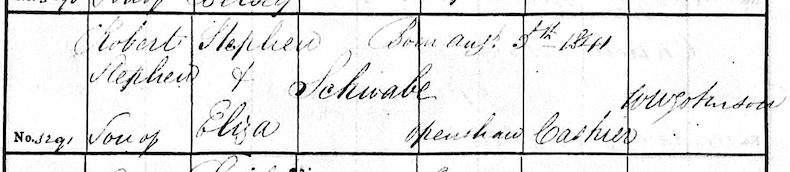 Robert Stephen Born Augt. 5th 1841
Stephen & Schwabe
W W Johnson
No. 3291 Son of Eliza Openshaw Cashier